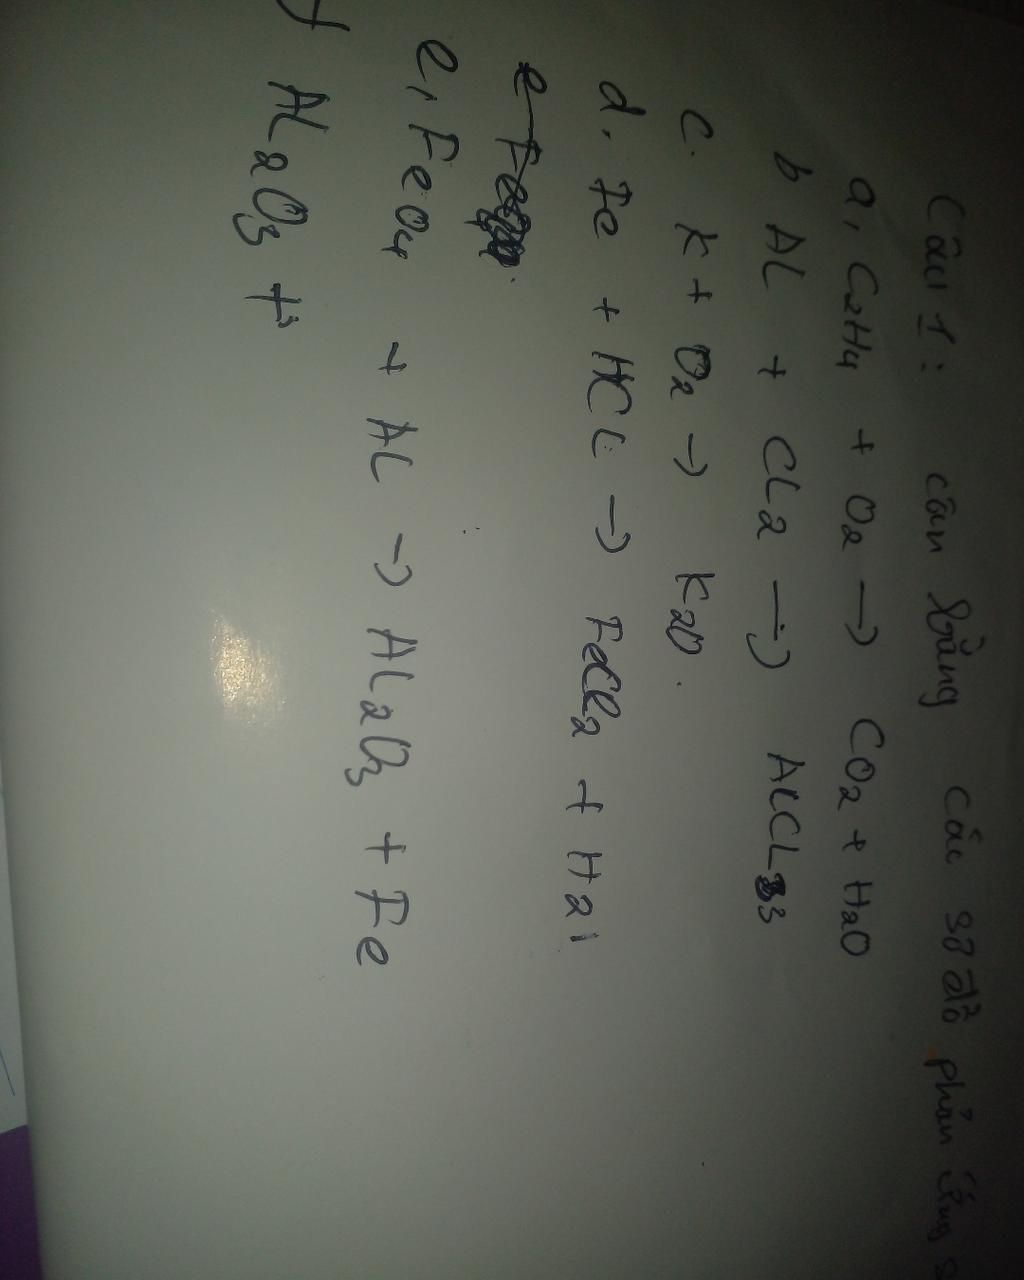 Câu 1: cân bằng các sơ đồ phản ứng
a, C2H4 + O2 → CO2 + H2O
b AL + CL2 → ALCL3
c. K + O2 → K2O.
d, Fe + HCL → FeCl2 + H2
e Fe
e, FeO4 + AL → AL2O3 + Fe
f AL2O3 +